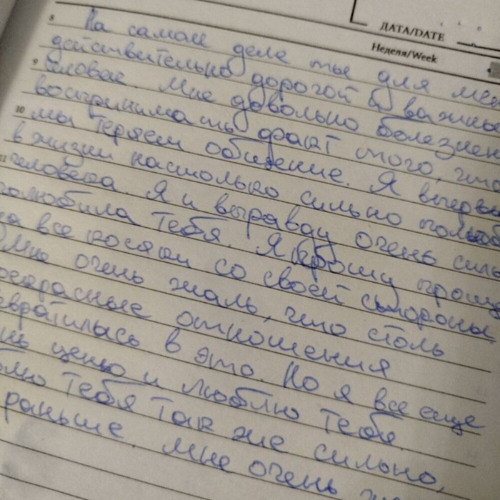 ДАТА/DATE
Неделя/Week
8
На самом деле ты для ме
действительно дорогой и важны
9
человек. Мне довольно болезнен
воспринимать факт того, что
10
мы теряем общение. Я впервы
в жизни настолько сильно полюб
11
человека. Я и вправду очень силь
полюбила тебя. Я прошу прощ
за все косяки со своей стороны
Мне очень жаль, что столь
прекрасные отношения
евратились в это. Но я все еще
нь ценю и люблю тебя.
блю тебя так же сильно,
раньше. Мне очень